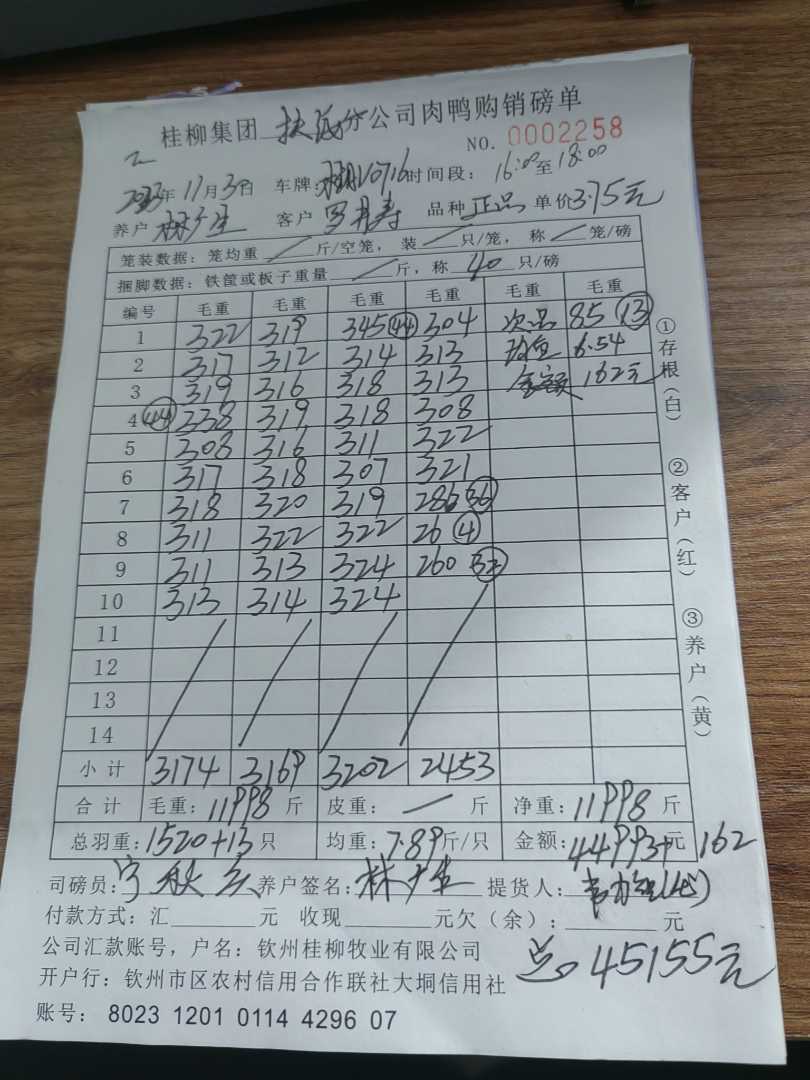 桂柳集团 分公司肉鸭购销磅单
NO. 0002258
2023年11月30日 车牌: 0716 时间段: 16:00至18:00
养户 林广生 客户 罗 寿 品种 正品 单价3.75元
笼装数据: 笼均重 / 斤/空笼, 装 / 只/笼, 称 / 笼/磅
捆脚数据: 铁筐或板子重量 / 斤, 称 40 只/磅
编号 毛重 毛重 毛重 毛重 毛重 毛重
1 322 319 345 (44) 304 次品 85 (13)
2 317 312 314 313 均重 6.54
3 319 316 318 313 金额 162元
4 (44) 338 319 318 308
5 308 316 311 322
6 317 318 307 321
7 318 320 319 286 (36)
8 311 322 322 26 (4)
9 311 313 324 260 (32)
10 313 314 324
11
12
13
14
小计 3174 3169 3202 2453
合计 毛重: 11998 斤 皮重: — 斤 净重: 11998 斤
总羽重: 1520+13 只 均重: 7.89斤/只 金额: 44993+元 162
司磅员: 养户签名: 林广生 提货人:
付款方式: 汇 元 收现 元欠(余): 元
公司汇款账号, 户名: 钦州桂柳牧业有限公司
总 45155元
开户行: 钦州市区农村信用合作联社大垌信用社
账号: 8023 1201 0114 4296 07
①存根(白)
②客户(红)
③养户(黄)